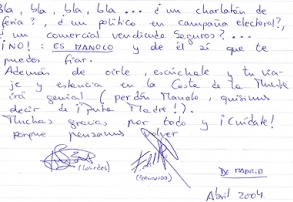 Bla, bla, bla, bla ... é un charlatán de
feria?, é un político en campaña electoral?,
é un comercial vendiendo seguros? ...
¡NO!: ES MANOLO y de él sí que te
puedes fiar.
Además de oirle, escúchale y tu via-
je y estancia en la Costa de la Muerte
irá genial (perdón Manolo, quisimos
decir de ¡Puta Madre!).
Muchas gracias por todo y ¡Cuídate!
porque pensamos volver
(Lourdes)
DE MADRID
Abril 2004